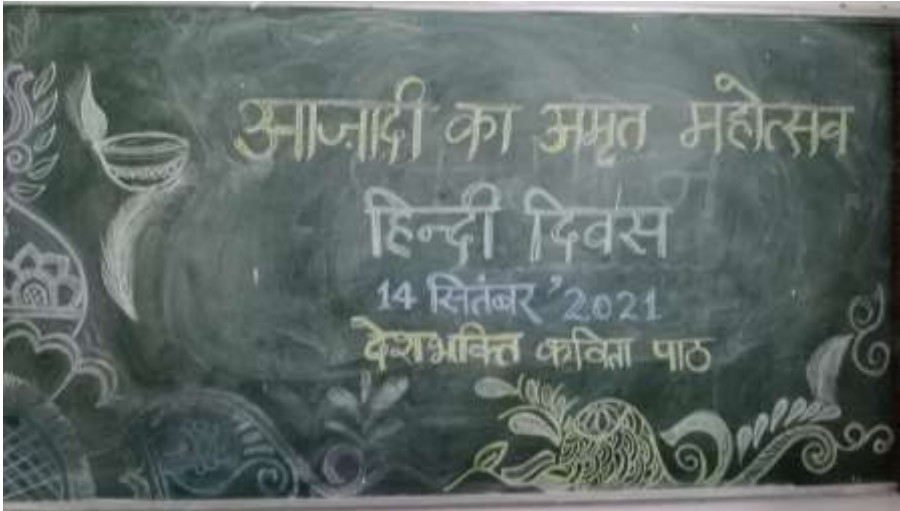 आज़ादी का अमृत महोत्सव
हिन्दी दिवस
14 सितंबर '2021
देशभक्ति कविता पाठ